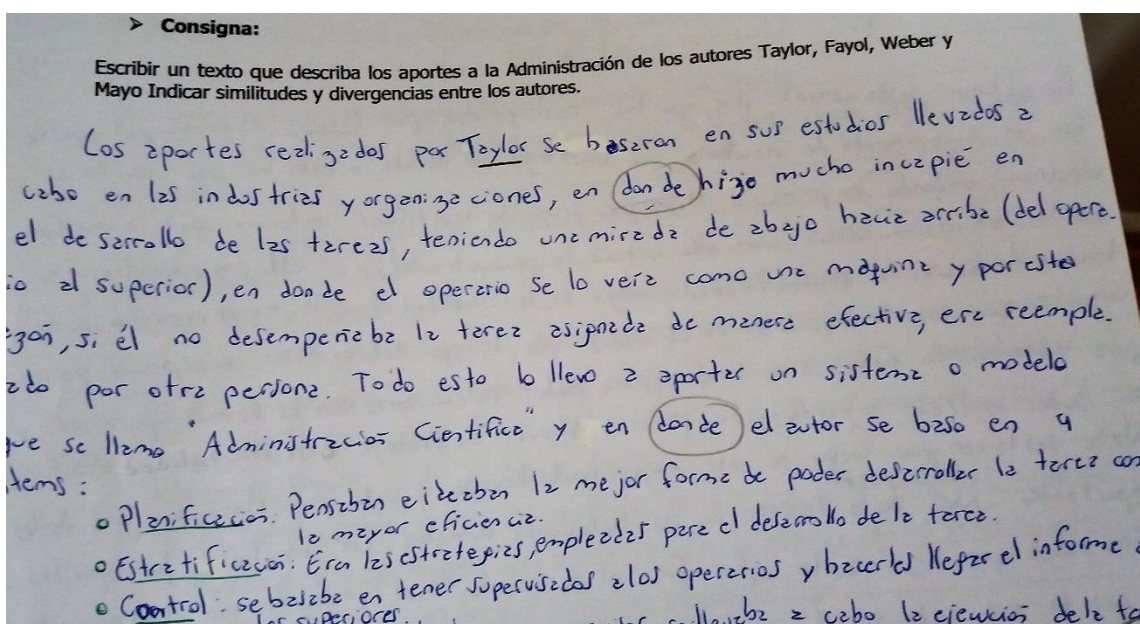 ➤ Consigna:
Escribir un texto que describa los aportes a la Administración de los autores Taylor, Fayol, Weber y
Mayo Indicar similitudes y divergencias entre los autores.
Los aportes realizados por Taylor se basaron en sus estudios llevados a
cabo en las industrias y organizaciones, en donde hizo mucho incapié en
el desarrollo de las tareas, teniendo una mirada de abajo hacia arriba (del opera-
io al superior), en donde el operario se lo veía como una máquina y por esta
zón, si él no desempeñaba la tarea asignada de manera efectiva, era reempla-
ado por otra persona. Todo esto lo llevo a aportar un sistema o modelo
que se llamo "Administración Cientifica" y en donde el autor se baso en 4
items:
o Planificación. Pensaban e ideaban la mejor forma de poder desarrollar la tarea con
la mayor eficiencia.
o Estratificación: Eran las estrategias, empleadas para el desarrollo de la tarea.
o Control: se basaba en tener supervisados a los operarios y hacerles llegar el informe a
los superiores.
llevaba a cabo la ejecución de la ta